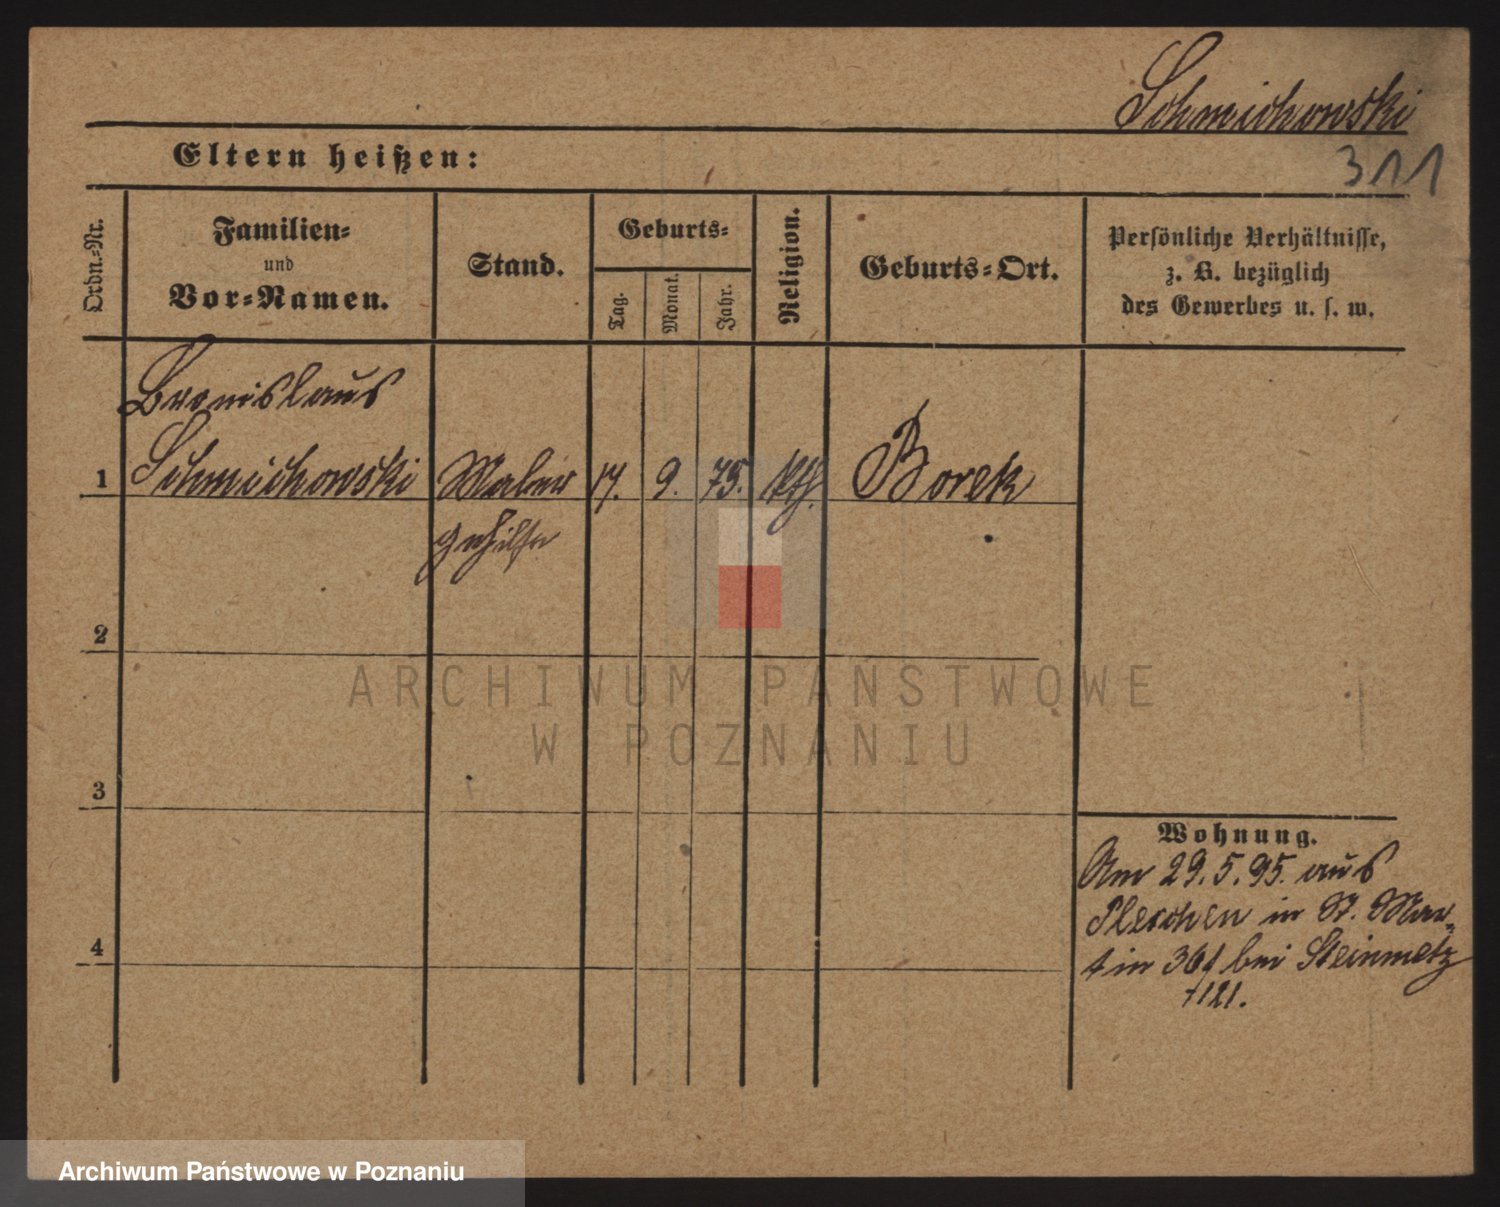 Schmichowski
311
Eltern heißen:
Ordn.-Nr.
Familien-
und
Vor-Namen.
Stand.
Geburts-
Tag.
Monat.
Jahr.
Religion.
Geburts-Ort.
Persönliche Verhältnisse,
z. B. bezüglich
des Gewerbes u. s. w.
Bronislaus
1 Schmichowski Maler 17. 9. 75. kth. Borek
gehilfe
2
3
4
Wohnung.
Am 29.5.95. aus
Pleschen in St. Mar-
tin bei Steinmetz
ARCHIWUM PAŃSTWOWE
W POZNANIU
Archiwum Państwowe w Poznaniu